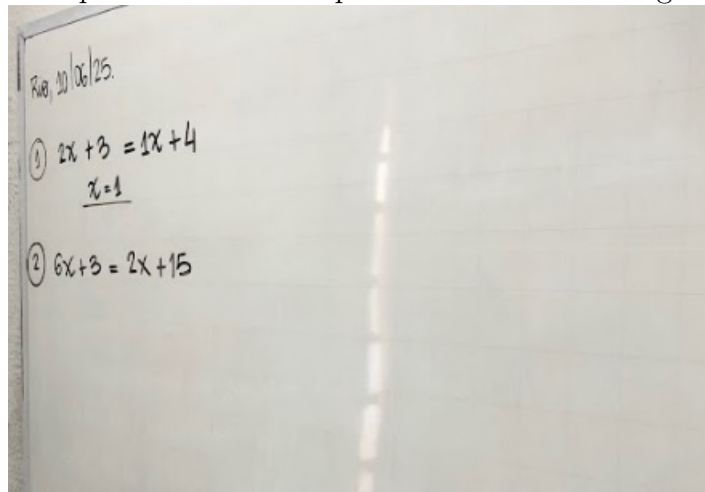 Rio, 10/06/25.
① 2x + 3 = 1x + 4
x = 1
② 6x + 3 = 2x + 15